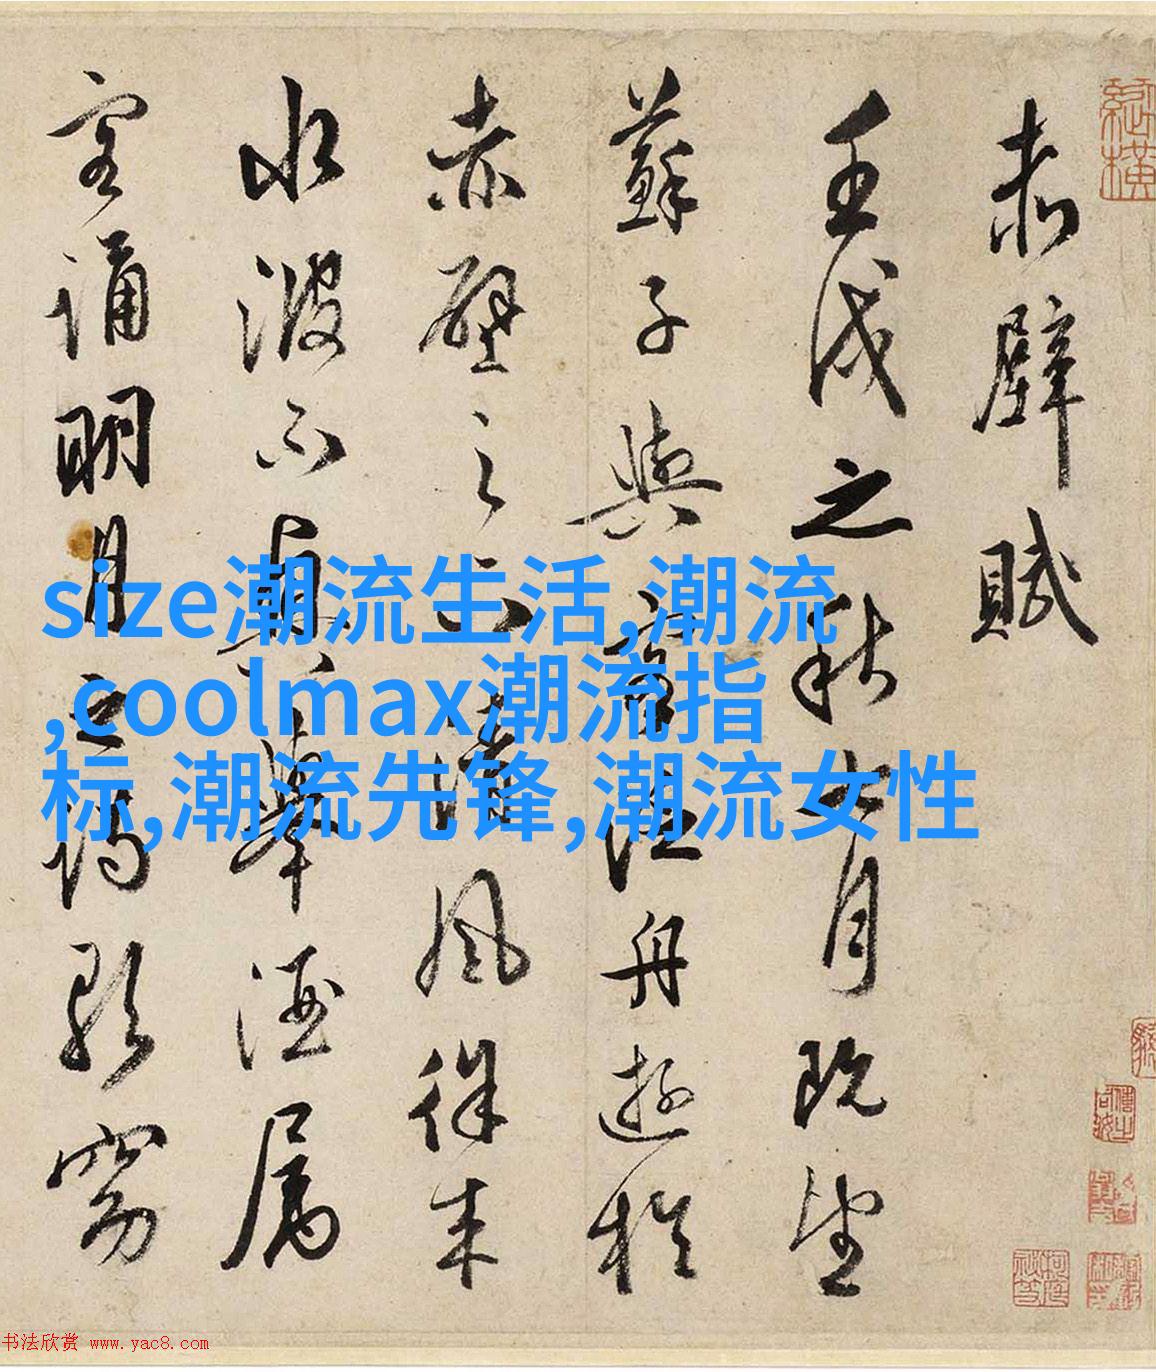 赤壁賦
壬戌之秋七月既望
蘇子與客泛舟遊於
赤壁之下清風徐來
水波不興舉酒屬
客誦明月之詩歌窈
size潮流生活,潮流
,coolmax潮流指
标,潮流先锋,潮流女性
书法欣赏 www.yac8.com